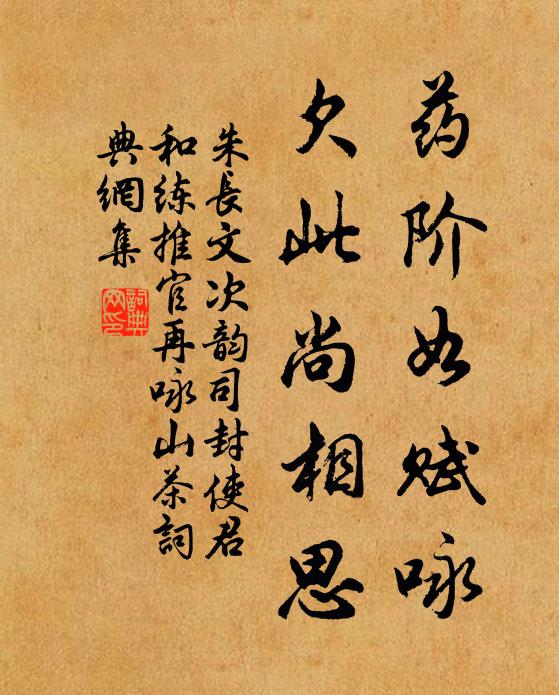 药阶如赋咏
欠此尚相思
朱長文次韵司封使君
和练推官再咏山茶詞
典網集
詞典
网印